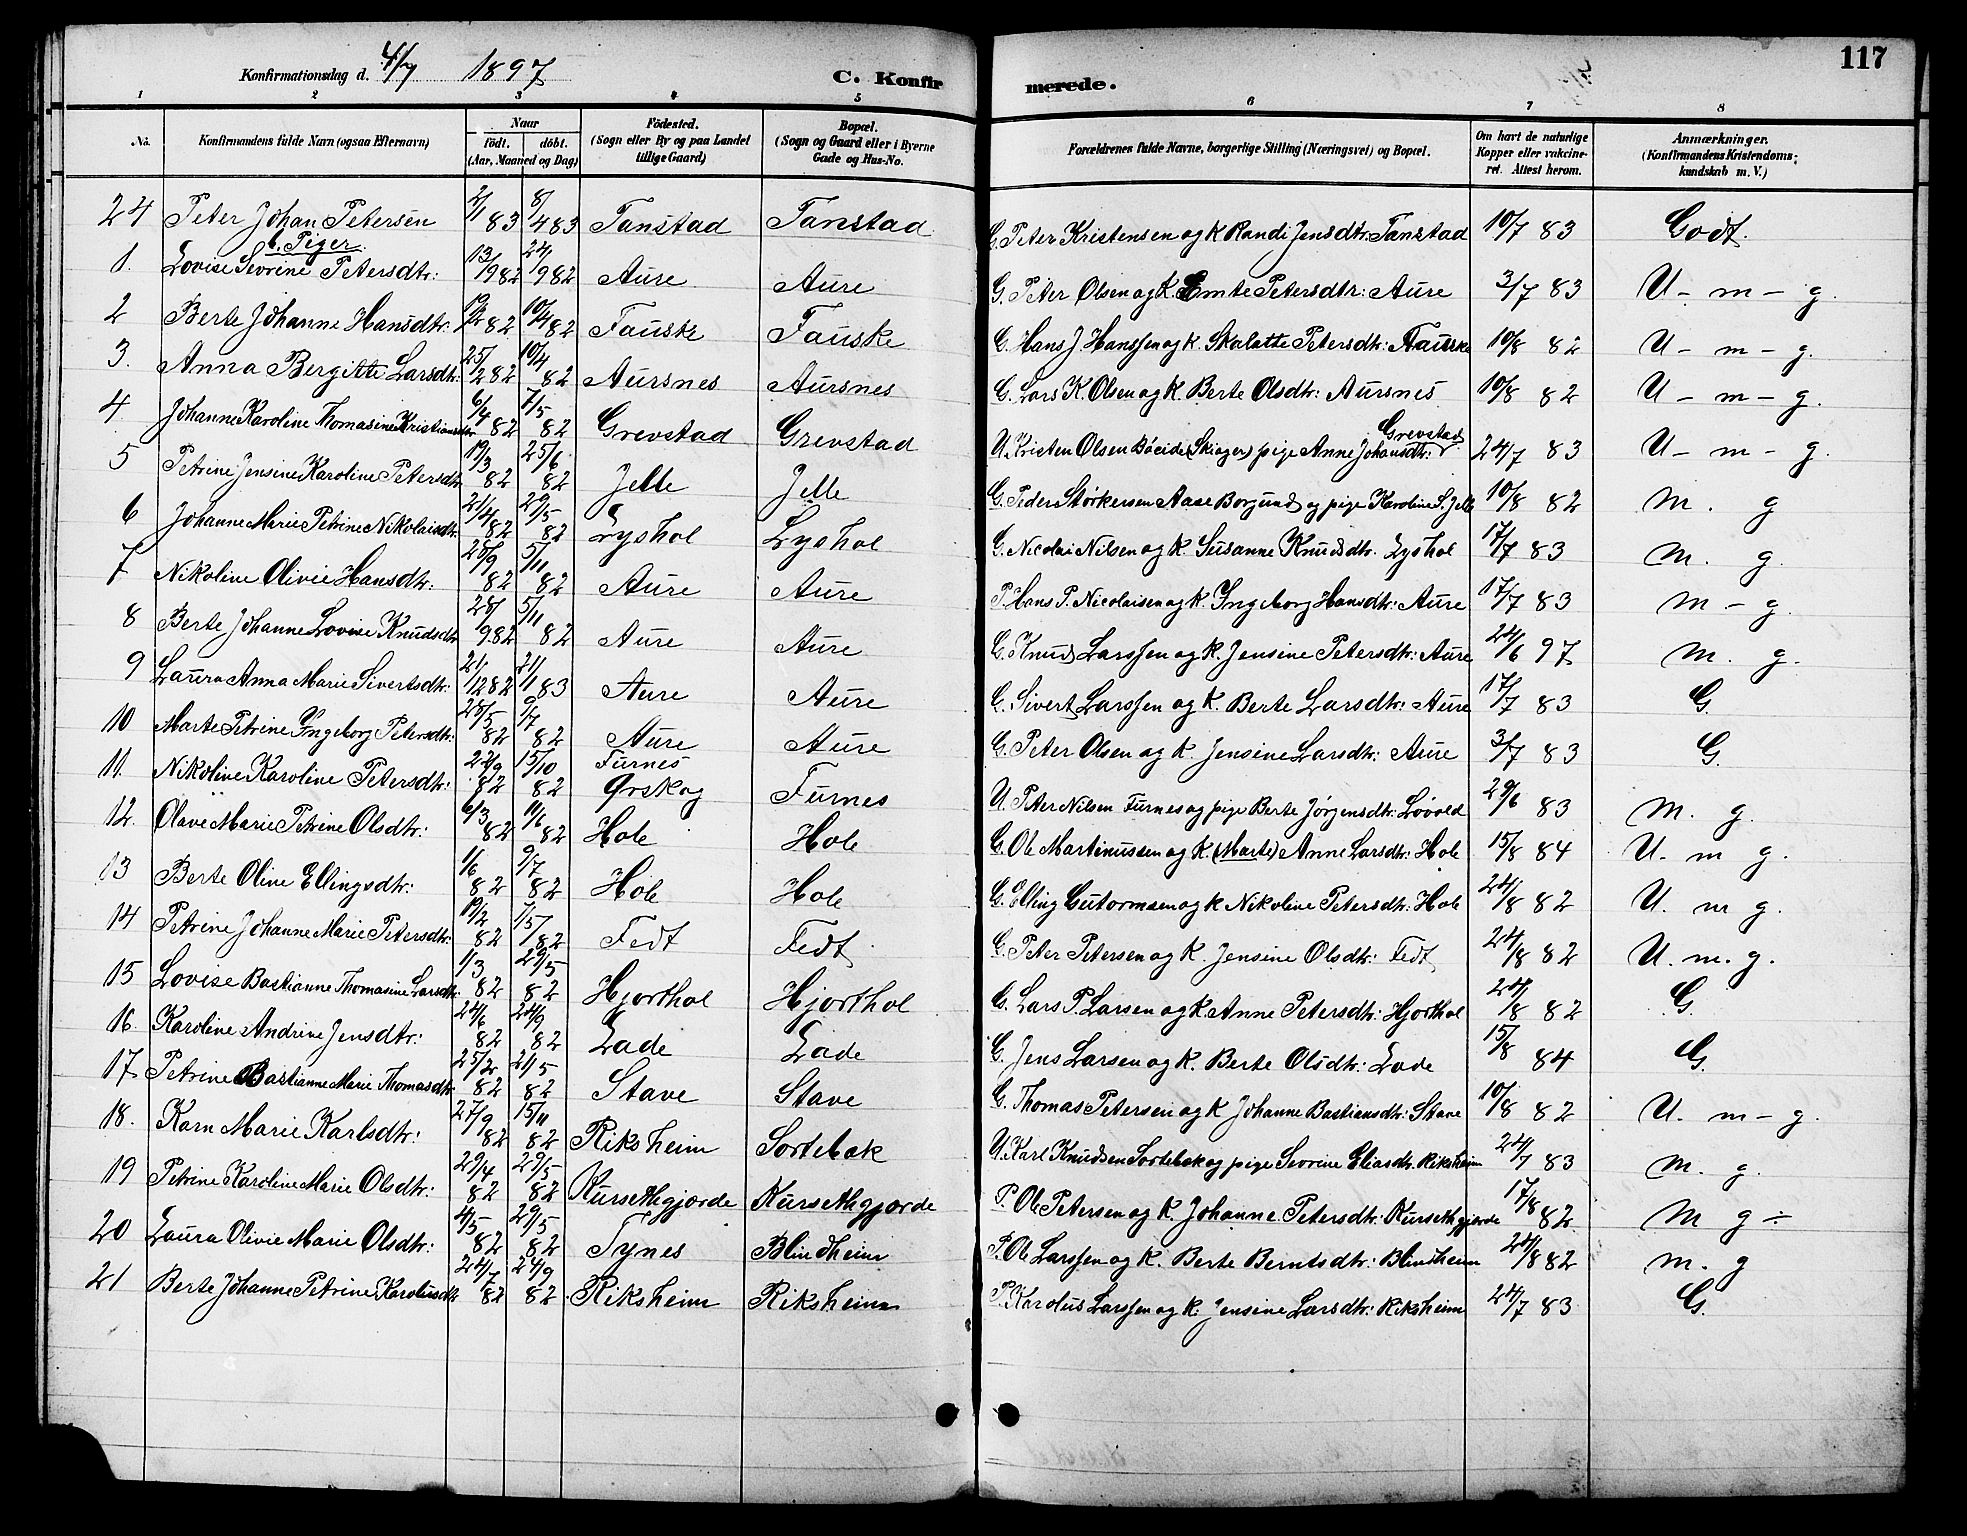 117
Konfirmationsdag d. 4/7 1897 C. Konfirmerede.
1 2 3 4 5 6 7 8
No. Konfirmandens fulde Navn (ogsaa Efternavn) Naar født. døbt. (Aar, Maaned og Dag) Fødested. (Sogn eller By og paa Landet tillige Gaard) Bopæl. (Sogn og Gaard eller i Byerne Gade og Hus-No. Forældrenes fulde Navne, borgerlige Stilling (Næringsvei) og Bopæl. Om havt de naturlige Kopper eller vakcineret. Attest herom. Anmærkninger. (Konfirmandens Kristendomskundskab m. V.)
24 Peter Johan Petersen 2/1 83 8/4 83 Tanstad Tanstad G. Peter Kristensen og K Randi Jensdtr: Tanstad 10/7 83 Godt.
b. Piger
1. Lovise Sevrine Petersdtr: 13/9 82 24/9 82 Aure Aure G. Peter Olsen og K. Emte Petersdtr: Aure 3/7 83 U - m - g.
2 Berte Johanne Hansdtr: 82 10/4 82 Fauske Fauske G. Hans J. Hanssen og K. Skalatte Petersdtr: Fauske 10/8 82 U - m - g.
3. Anna Bergitte Larsdtr: 25/2 82 10/4 82 Aursnes Aursnes G. Lars K. Olsen og K. Berte Olsdtr: Aursnes 10/8 82 U - m - g.
4 Johanne Karoline Thomasine Kristiansdtr 6/4 82 7/5 82 Grevstad Grevstad U. Kristen Olsen (Skiager) pige Anne Johansdtr: Grevstad 24/7 83 U - m - g.
5 Petrine Jensine Karoline Petersdtr 19/3 82 25/6 82 Jelle Jelle G. Peder Størkersen Aase Borgund og pige Karoline S. Jelle 10/8 82 m. g
6 Johanne Marie Petrine Nikolaisdtr. 21/4 82 29/5 82 Lyshol Lyshol G. Nicolai Nilsen og K. Susanne Knudsdtr. Lyshol 17/7 83 m. g.
7 Nikoline Olivie Hansdtr: 25/9 82 5/11 82 Aure Aure P. Hans P. Nicolaisen og K. Ingeborg Hansdtr: Aure 17/7 83 m - g.
8 Berte Johanne Lovise Knudsdtr 28/9 82 5/11 82 Aure Aure G. Knud Larssen og K. Jensine Petersdtr: Aure 24/6 97 m. g.
9 Laura Anna Marie Sivertsdtr: 21/12 82 21/1 83 Aure Aure G. Sivert Larssen og K. Berte Larsdtr: Aure 17/7 83 G.
10 Marte Petrine Ingeborg Petersdtr: 25/5 82 9/7 82 Aure Aure G. Peter Olsen og K. Jensine Larsdtr: Aure 3/7 83 G.
11. Nikoline Karoline Petersdtr: 22/9 82 15/10 82 Furnes Ørskog Furnes U. Peter Nilsen Furnes og pige Berte Jørgensdtr: Løvold 29/6 83 m. g.
12. Olave Marie Petrine Olsdtr: 6/3 82 11/6 82 Hole Hole G. Ole Martinussen og K. (Marte) Anne Larsdtr: Hole 15/8 84 U. m g.
13 Berte Oline Ellingsdtr: 1/6 82 9/7 82 Hole Hole G. Elling Gutormsen og K Nikoline Petersdtr: Hole 24/8 82 U. m g.
14 Petrine Johanne Marie Petersdtr: 19/2 82 7/5 82 Fedt Fedt G. Peter Petersen og K. Jensine Olsdtr: Fedt 24/8 82 U. m. g.
15 Lovise Bastianne Thomasine Larsdtr: 1/3 82 29/5 82 Hjorthol Hjorthol G. Lars P. Larsen og K Anne Petersdtr: Hjorthol 24/8 82 G.
16. Karoline Andrine Jensdtr: 24/6 82 24/9 82 Lade Lade G. Jens Larsen og K. Berte Olsdtr: Lade 15/8 84 G.
17. Petrine Bastianne Marie Thomasdtr 25/2 82 21/5 82 Stave Stave G. Thomas Petersen og K Johanne Bastiansdtr: Stave 10/8 82 U. m - g.
18. Karn Marie Karlsdtr: 27/9 82 15/11 82 Riksheim Sortebak U. Karl Knudsen Sortebak og pige Sevrine Eliasdtr. Riksheim 24/7 83 m. g.
19 Petrine Karoline Marie Olsdtr: 29/4 82 29/5 82 Kursethgjorde Kursethgjorde P. Ole Petersen og K. Johanne Petersdtr: Kursethgjorde 17/8 82 M g ÷
20 Laura Olivie Marie Olsdtr: 4/5 82 29/5 82 Tynes Blindheim P. Ole Larssen og K. Berte Berntsdtr: Blindheim 24/8 82 m. g
21 Berte Johanne Petrine Karolusdtr 24/7 82 24/9 82 Riksheim Riksheim P. Karolus Larssen og K. Jensine Larsdtr: Riksheim 24/7 83 G.